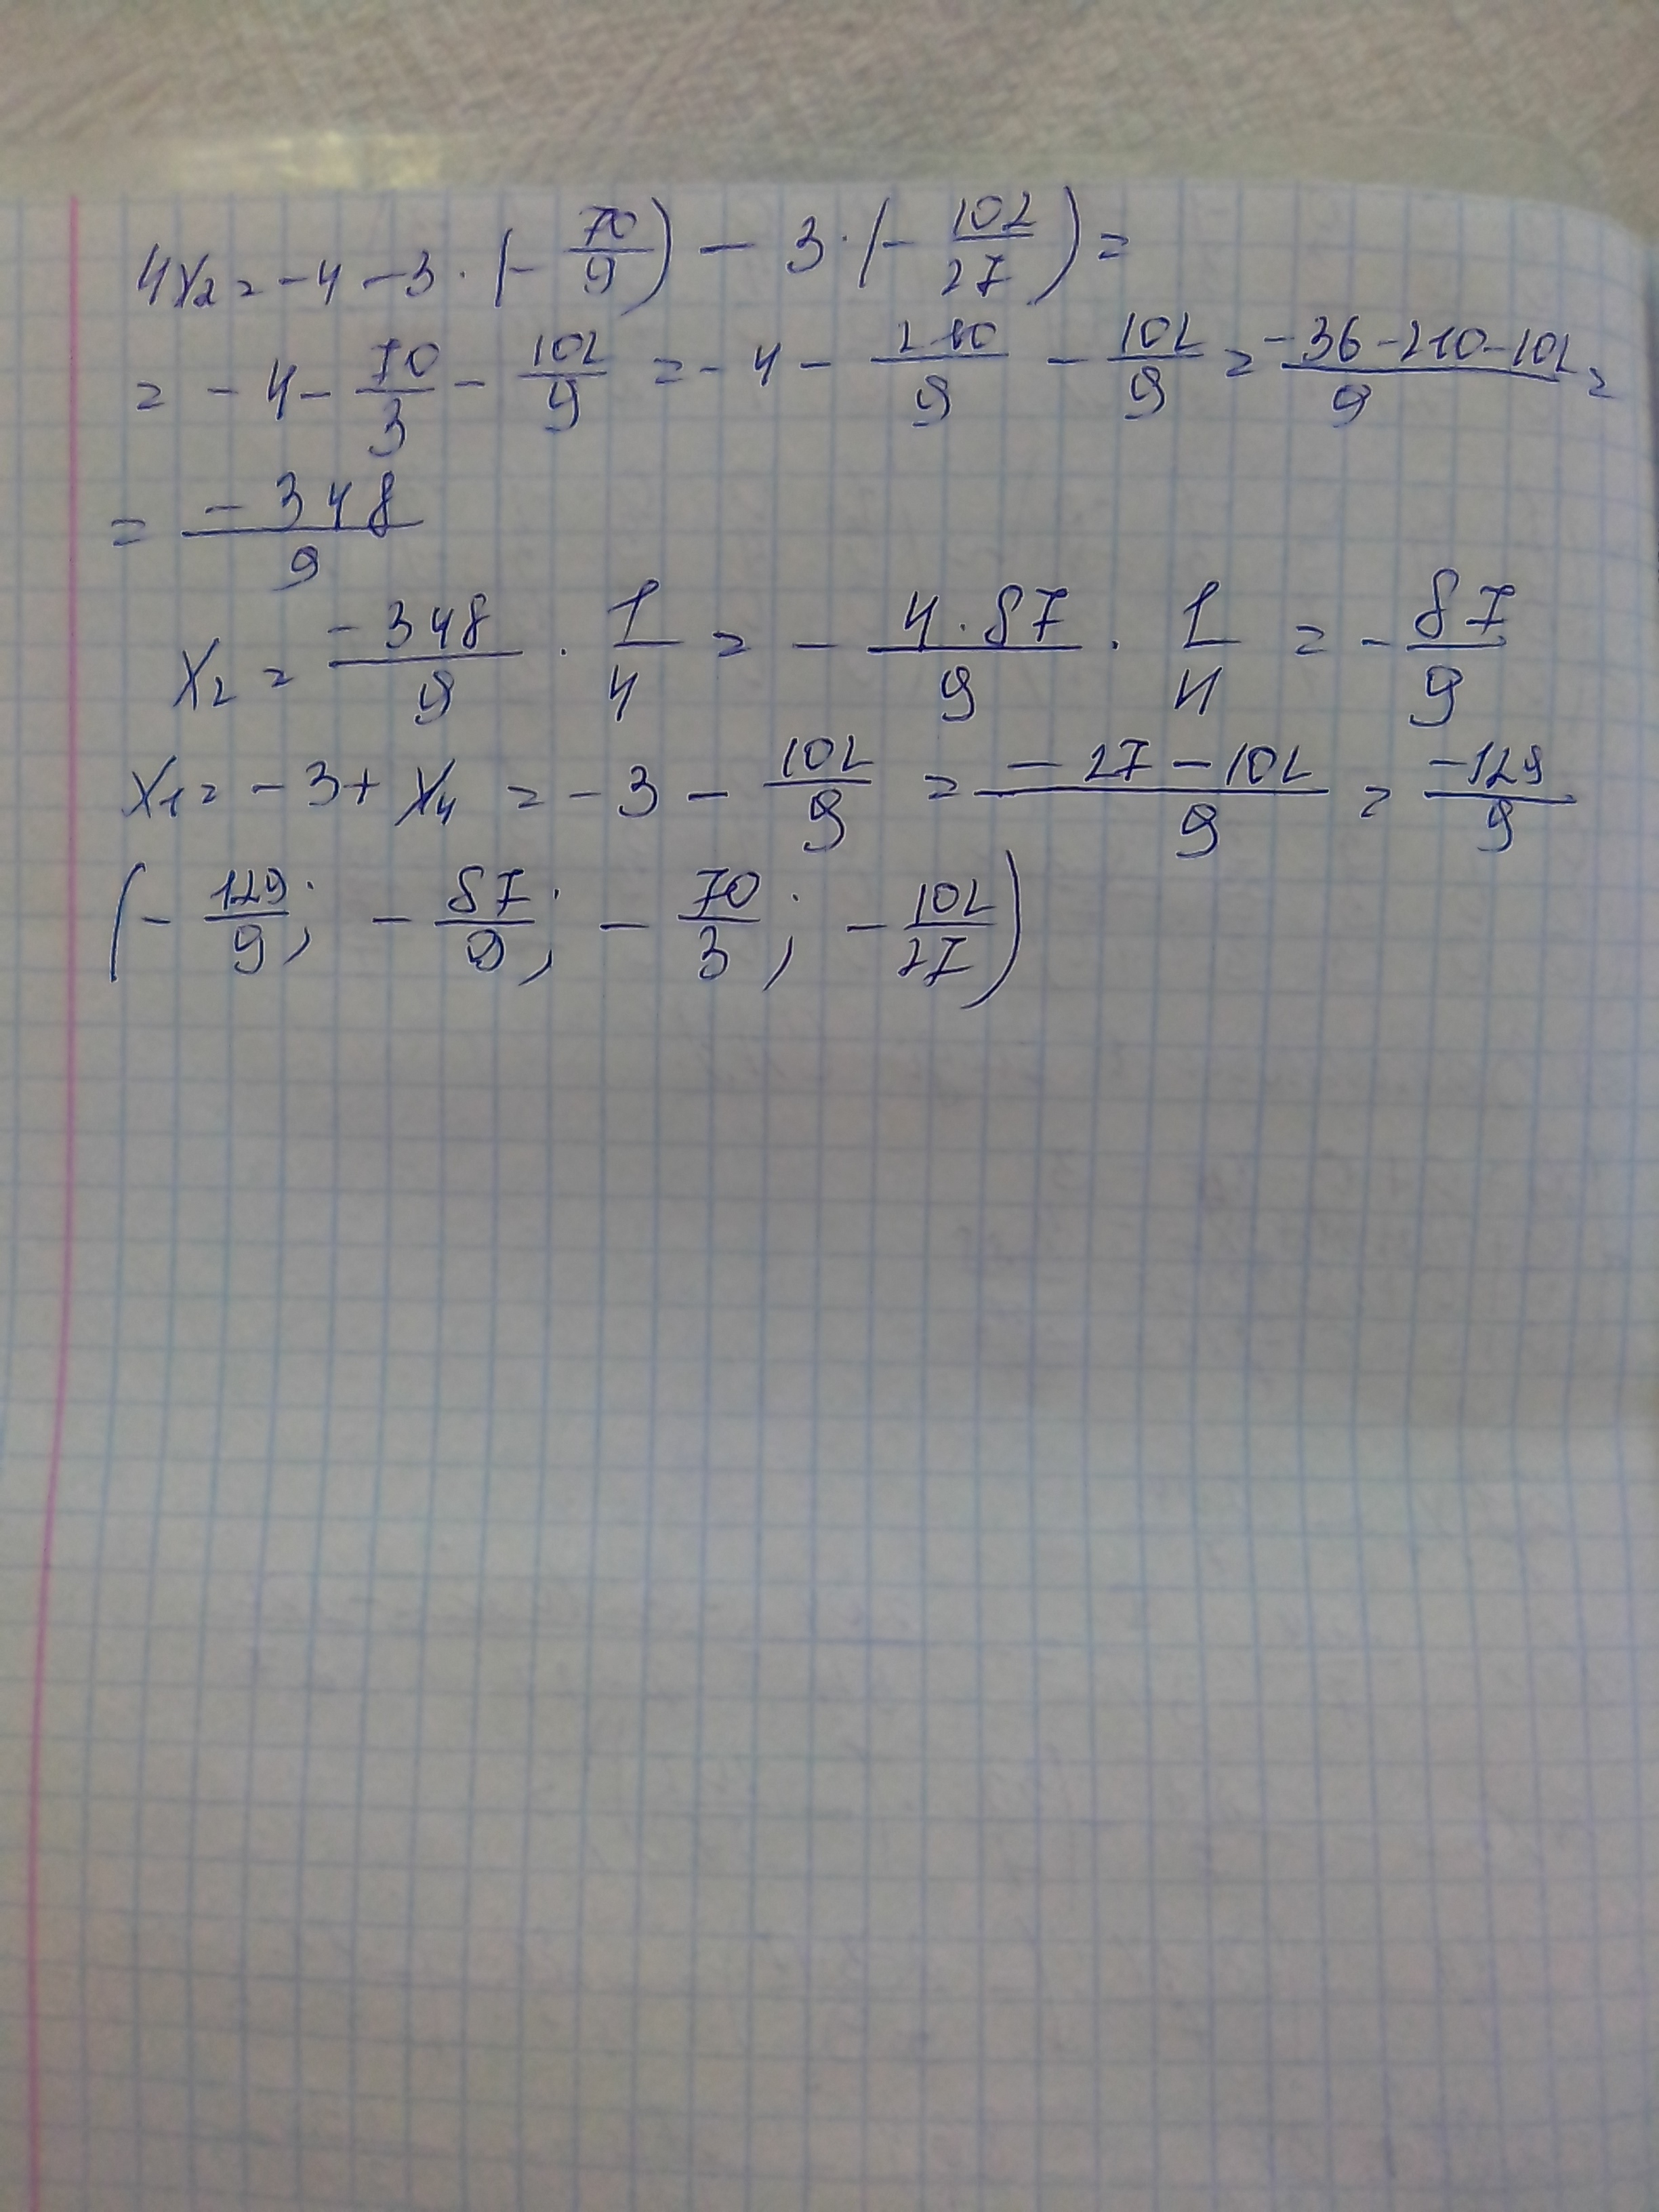 4x₂ = -4 - 3·(-70/9) - 3·(-102/27) =
= -4 - 70/3 - 102/9 = -4 - 210/9 - 102/9 = (-36-210-102)/9 =
= -348/9
x₂ = -348/9 · 1/4 = - 4·87/9 · 1/4 = - 87/9
x₁ = -3 + x₄ = -3 - 102/9 = (-27-102)/9 = -129/9
(-129/9; -87/9; -70/3; -102/27)